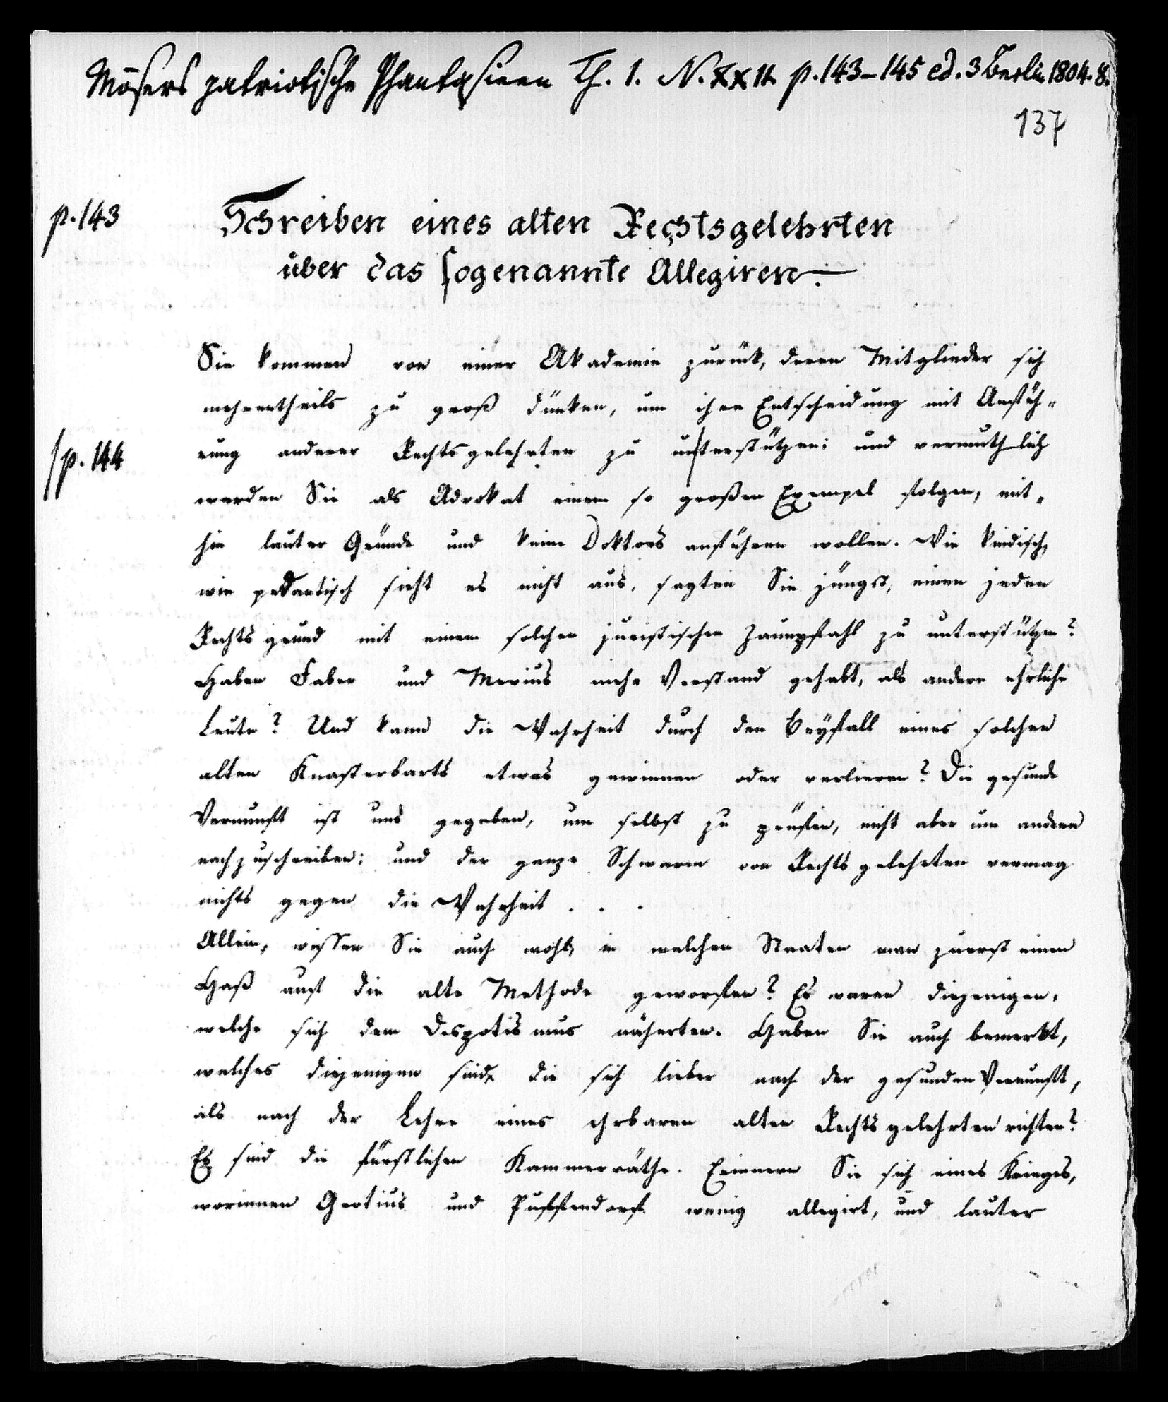 Mösers patriotische Phantasieen Th. 1. N. XXII. p. 143–145 ed. 3 Berlin 1804. 8.
137
p. 143
Schreiben eines alten Rechtsgelehrten
über das sogenannte Allegiren.
Sie kommen von einer Akademie zurück, deren Mitglieder sich
mehrentheils zu groß dünken, um ihre Entscheidung mit Anfüh-
p. 144
rung anderer Rechtsgelehrten zu unterstützen: und vermuthlich
werden Sie als Advokat einem so großen Exempel folgen, mit-
hin lauter Gründe und keine Doktors anführen wollen. Wie kindisch,
wie pedantisch sieht es nicht aus, sagten Sie jüngst, einen jeden
Rechtsgrund mit einem solchen juristischen Zaunpfahl zu unterstützen?
Haben Faber und Mevius mehr Verstand gehabt, als andere ehrliche
Leute? Und kann die Wahrheit durch den Beyfall eines solchen
alten Knasterbarts etwas gewinnen oder verlieren? Die gesunde
Vernunft ist uns gegeben, um selbst zu prüfen, nicht aber um andern
nachzuschreiben; und der ganze Schwarm von Rechtsgelehrten vermag
nichts gegen die Wahrheit . . .
Allein, wissen Sie auch wohl, in welchen Staaten man zuerst einen
Haß auf die alte Methode geworfen? Es waren diejenigen,
welche sich dem Despotismus näherten. Haben Sie auch bemerkt,
welches diejenigen sind, die sich lieber nach der gesunden Vernunft,
als nach der Lehre eines ehrbaren alten Rechtsgelehrten richten?
Es sind die fürstlichen Kammerräthe. Erinnern Sie sich eines Krieges,
worinnen Grotius und Puffendorf wenig allegirt, und lauter